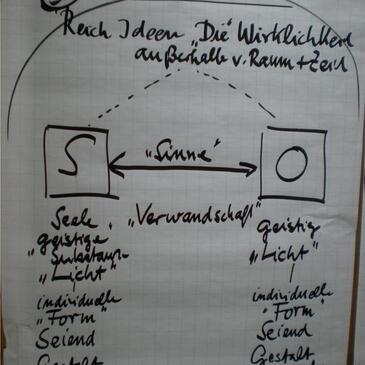 Reich Ideen „Die" Wirklichkeit
außerhalb v. Raum + Zeit
S
„Sinne"
O
Seele
„Verwandschaft"
geistig
geistige
Substanz
„Licht"
„Licht"
individuelle
individuelle
„Form"
„Form"
Seiend
Seiend
Gestalt
Gestalt